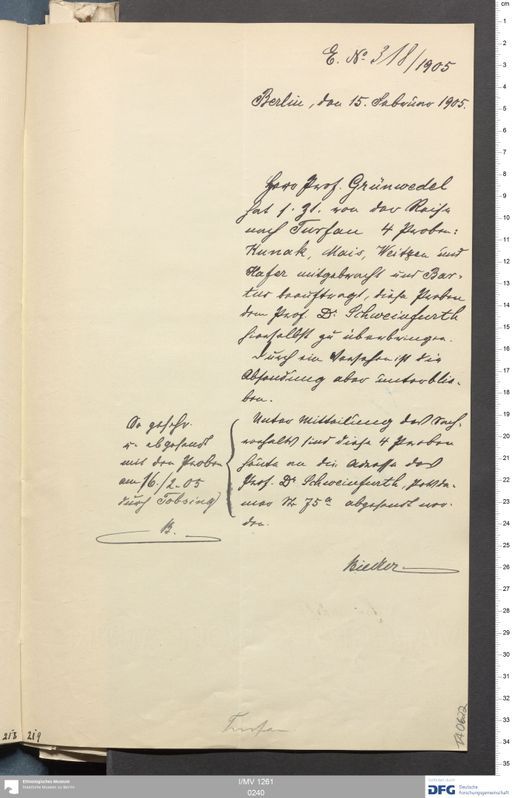 E. No 318/1905
Berlin, den 15. Februar 1905.
Herr Prof. Grünwedel
hat s. Zt. von der Reise
nach Turfan 4 Proben:
Kunak, Mais, Weitzen und
Hafer mitgebracht und Bar-
tus beauftragt, diese Proben
dem Prof. Dr Schweinfurth
hierselbst zu überbringen.
Durch ein Versehen ist die
Absendung aber unterblie-
ben.
Unter Mitteilung des Sach-
verhalts sind diese 4 Proben
heute an die Adresse des
Prof. Dr Schweinfurth, Potsda-
mer Str 75a abgesandt wor-
den.
geschr.
u. abgesandt
mit den Proben
am 16./2. 05
durch Tobsing
B.
Turfan
218 219
TA 0672
cm
1
2
3
4
5
6
7
8
9
10
11
12
13
14
15
16
17
18
19
20
21
22
23
24
25
26
27
28
29
30
31
32
33
34
35
Ethnologisches Museum
Staatliche Museen zu Berlin
I/MV 1261
0240
Gefördert durch
DFG Deutsche
Forschungsgemeinschaft